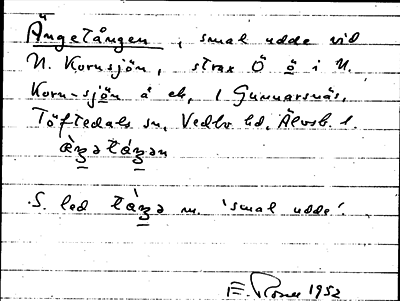 Ängetången, smal udde vid
N. Kornsjön, strax Ö ö i N.
Korn-sjön å ek, 1 Gunnarsnäs,
Töftedals sn, Vedbo hd, Älvsb. l.
S. led m. 'smal udde'.
1952